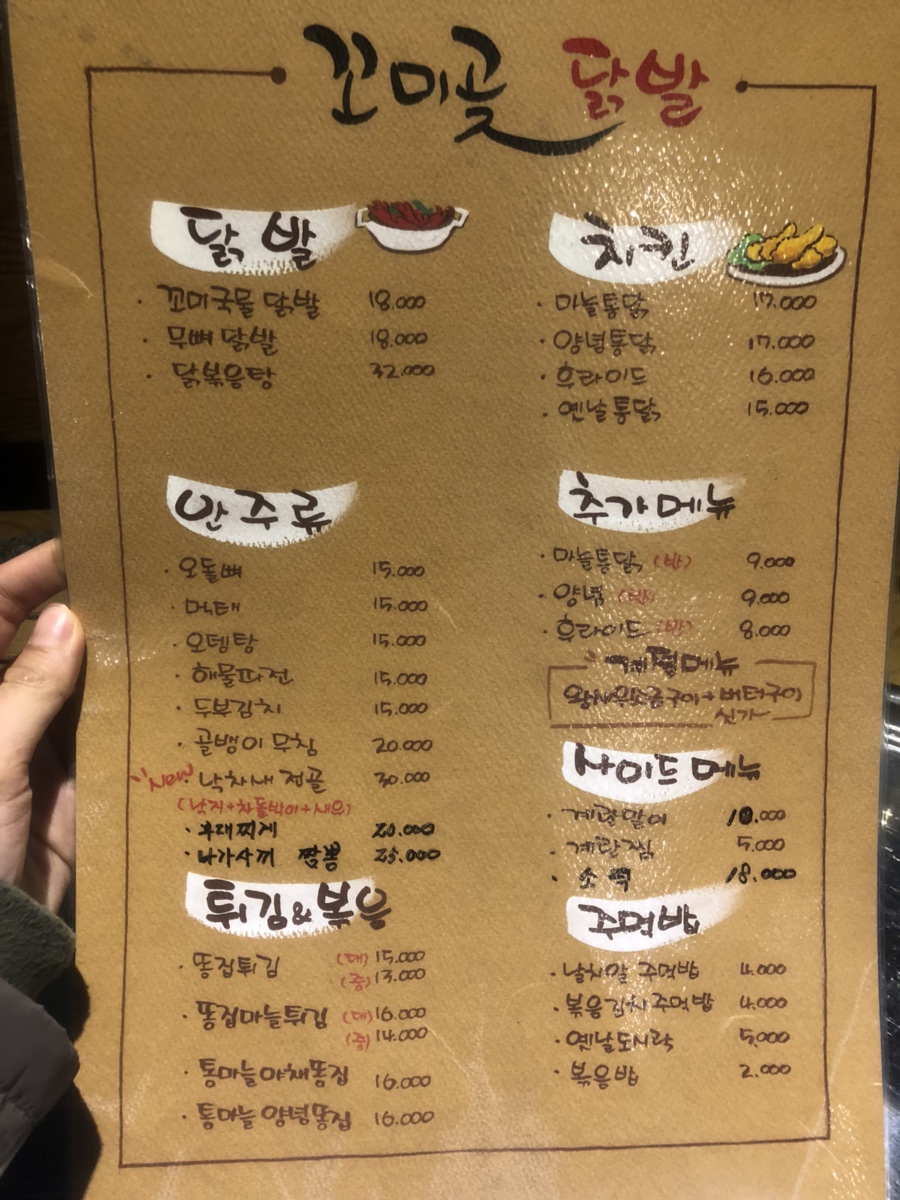 꼬미곷 닭발
닭발
꼬미국물 닭발 18.000
무뼈 닭발 18.000
닭볶음탕 32.000
치킨
마늘통닭 17.000
양념통닭 17.000
후라이드 16.000
옛날통닭 15.000
안주류
오돌뼈 15.000
먹태 15.000
오뎅탕 15.000
해물파전 15.000
두부김치 15.000
골뱅이 무침 20.000
New 낙차새 전골 30.000
(낙지+차돌박이+새우)
부대찌게 20.000
나가사끼 짬뽕 25.000
튀김&볶음
똥집튀김 (대) 15.000
(중) 13.000
똥집마늘튀김 (대) 16.000
(중) 14.000
통마늘야채똥집 16.000
통마늘양념똥집 16.000
추가메뉴
마늘통닭 (반) 9.000
양념 (반) 9.000
후라이드 (반) 8.000
계절메뉴
왕새우소금구이+버터구이
싯가
사이드 메뉴
계란말이 10.000
계란찜 5.000
소떡 18.000
주먹밥
날치알 주먹밥 4.000
볶음김치주먹밥 4.000
옛날도시락 5.000
볶음밥 2.000